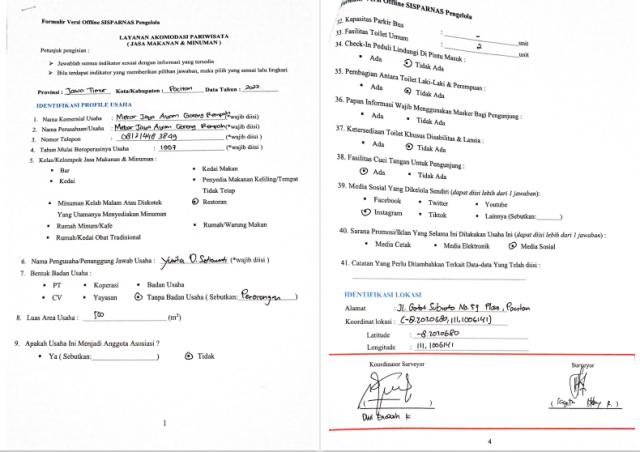 Formulir Versi Offline SISPARNAS Pengelola
LAYANAN AKOMODASI PARIWISATA
( JASA MAKANAN & MINUMAN )
Petunjuk pengisian :
➢ Jawablah semua indikator sesuai dengan informasi yang tersedia
➢ Bila terdapat indikator yang memberikan pilihan jawaban, maka pilih yang sesuai lalu lingkari
Provinsi : Jawa Timur Kota/Kabupaten : Pacitan Data Tahun : 2022
IDENTIFIKASI PROFILE USAHA
1. Nama Komersial Usaha : Mekar Jaya Ayam Goreng (*wajib diisi )
2. Nama Perusahaan/Usaha : Mekar Jaya Ayam Goreng (*wajib diisi )
3. Nomor Telepon : (*wajib diisi )
4. Tahun Mulai Beroperasinya Usaha : 1997 (*wajib diisi )
5. Kelas/Kelompok Jasa Makanan & Minuman :
• Bar • Kedai Makan
• Kedai • Penyedia Makanan Keliling/Tempat Tidak Tetap
• Minuman Kelab Malam Atau Diskotek Yang Utamanya Menyediakan Minuman • Restoran
• Rumah Minum/Kafe • Rumah/Warung Makan
• Rumah/Kedai Obat Tradisional
6. Nama Pengusaha/Penanggung Jawab Usaha : (*wajib diisi )
7. Bentuk Badan Usaha :
• PT • Koperasi • Badan Usaha
• CV • Yayasan • Tanpa Badan Usaha ( Sebutkan: Perorangan )
8. Luas Area Usaha : (m²)
9. Apakah Usaha Ini Menjadi Anggota Asosiasi ?
• Ya ( Sebutkan: ) • Tidak
1
Formulir Versi Offline SISPARNAS Pengelola
32. Kapasitas Parkir Bus : - unit
33. Fasilitas Toilet Umum : 2 unit
34. Check-In Peduli Lindungi Di Pintu Masuk :
• Ada • Tidak Ada
35. Pembagian Antara Toilet Laki-Laki & Perempuan :
• Ada • Tidak Ada
36. Papan Informasi Wajib Menggunakan Masker Bagi Pengunjung :
• Ada • Tidak Ada
37. Ketersediaan Toilet Khusus Disabilitas & Lansia :
• Ada • Tidak Ada
38. Fasilitas Cuci Tangan Untuk Pengunjung :
• Ada • Tidak Ada
39. Media Sosial Yang Dikelola Sendiri (dapat diisi lebih dari 1 jawaban):
• Facebook • Twitter • Youtube
• Instagram • Tiktok • Lainnya (Sebutkan: )
40. Sarana Promosi/Iklan Yang Selama Ini Dilakukan Usaha Ini (dapat diisi lebih dari 1 jawaban) :
• Media Cetak • Media Elektronik • Media Sosial
41. Catatan Yang Perlu Ditambahkan Terkait Data-data Yang Telah diisi :
IDENTIFIKASI LOKASI
Alamat : Jl. Gatot Subroto No. 59 , Pacitan
Koordinat lokasi : (-8.2020680, 111.1006141)
Latitude : -8.2020680
Longitude : 111.1006141
Koordinator Surveyor
Surveyor
4